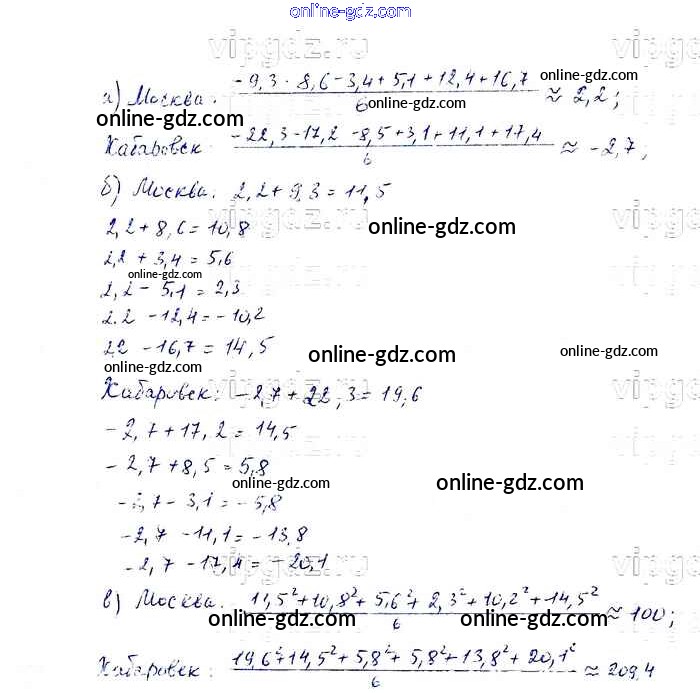 online-gdz.com
а) Москва: -9,3 - 8,6 - 3,4 + 5,1 + 12,4 + 16,7 / 6 ≈ 2,2;
online-gdz.com
online-gdz.com
online-gdz.com
Хабаровск -22,3 - 17,2 - 8,5 + 3,1 + 11,1 + 17,4 / 6 ≈ -2,7;
б) Москва: 2,2 + 9,3 = 11,5
2,2 + 8,6 = 10,8
online-gdz.com
2,2 + 3,4 = 5,6
online-gdz.com
2,2 - 5,1 = 2,3
2.2 - 12,4 = - 10,2
22 - 16,7 = 14,5
online-gdz.com
online-gdz.com
online-gdz.com
Хабаровск: -2,7 + 22,3 = 19,6
- 2,7 + 17,2 = 14,5
- 2,7 + 8,5 = 5,8
online-gdz.com
online-gdz.com
-2,7 - 3,1 = - 5,8
-2,7 - 11,1 = - 13,8
-2,7 - 17,4 = - 20,1
в) Москва. 11,5² + 10,8² + 5,6² + 2,3² + 10,2² + 14,5² / 6 ≈ 100;
online-gdz.com
online-gdz.com
online-gdz.com
Хабаровск: 19,6² + 14,5² + 5,8² + 5,8² + 13,8² + 20,1² / 6 ≈ 209,4